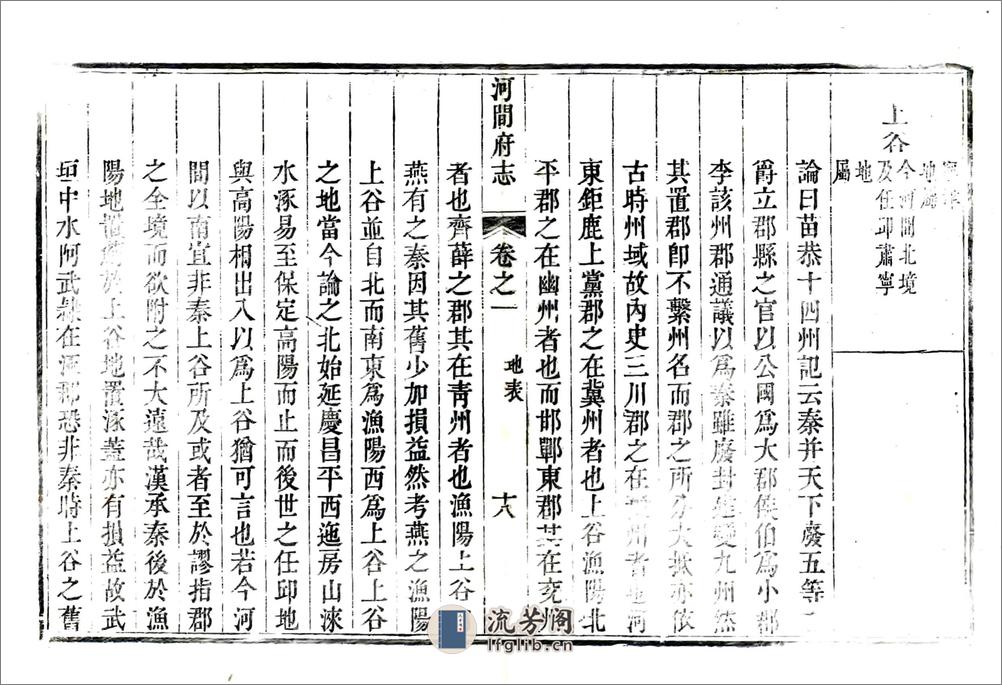 地屬
上谷今河間北境
及任邱肅寧
地
屬
論曰苗恭十四州記云秦并天下廢五等之
爵立郡縣之官以公國爲大郡侯伯爲小郡
李該州郡通議以爲秦雖廢封建變九州然
其置郡即不繫州名而郡之所分大抵亦依
古時州域故內史三川郡之在豫州者也河
東鉅鹿上黨郡之在冀州者也上谷漁陽北
平郡之在幽州者也而邯鄲東郡其在兗州
者也齊薛之郡其在靑州者也漁陽上谷
河間府志 卷之一 地表 十八
燕有之秦因其舊少加損益然考燕之漁陽
上谷並自北而南東爲漁陽西爲上谷上谷
之地當今論之北始延慶昌平西迤房山淶
水涿易至保定高陽而止而後世之任邱地
與高陽相出入以爲上谷猶可言也若今河
間以南宜非秦上谷所及或者至於謬指郡
之全境而欲附之不大遠哉漢承秦後於漁
陽地置 於上谷地置涿蓋亦有損益故武
垣中水阿武隸在河郡恐非秦時上谷之舊
流芳閣
lfglib.cn